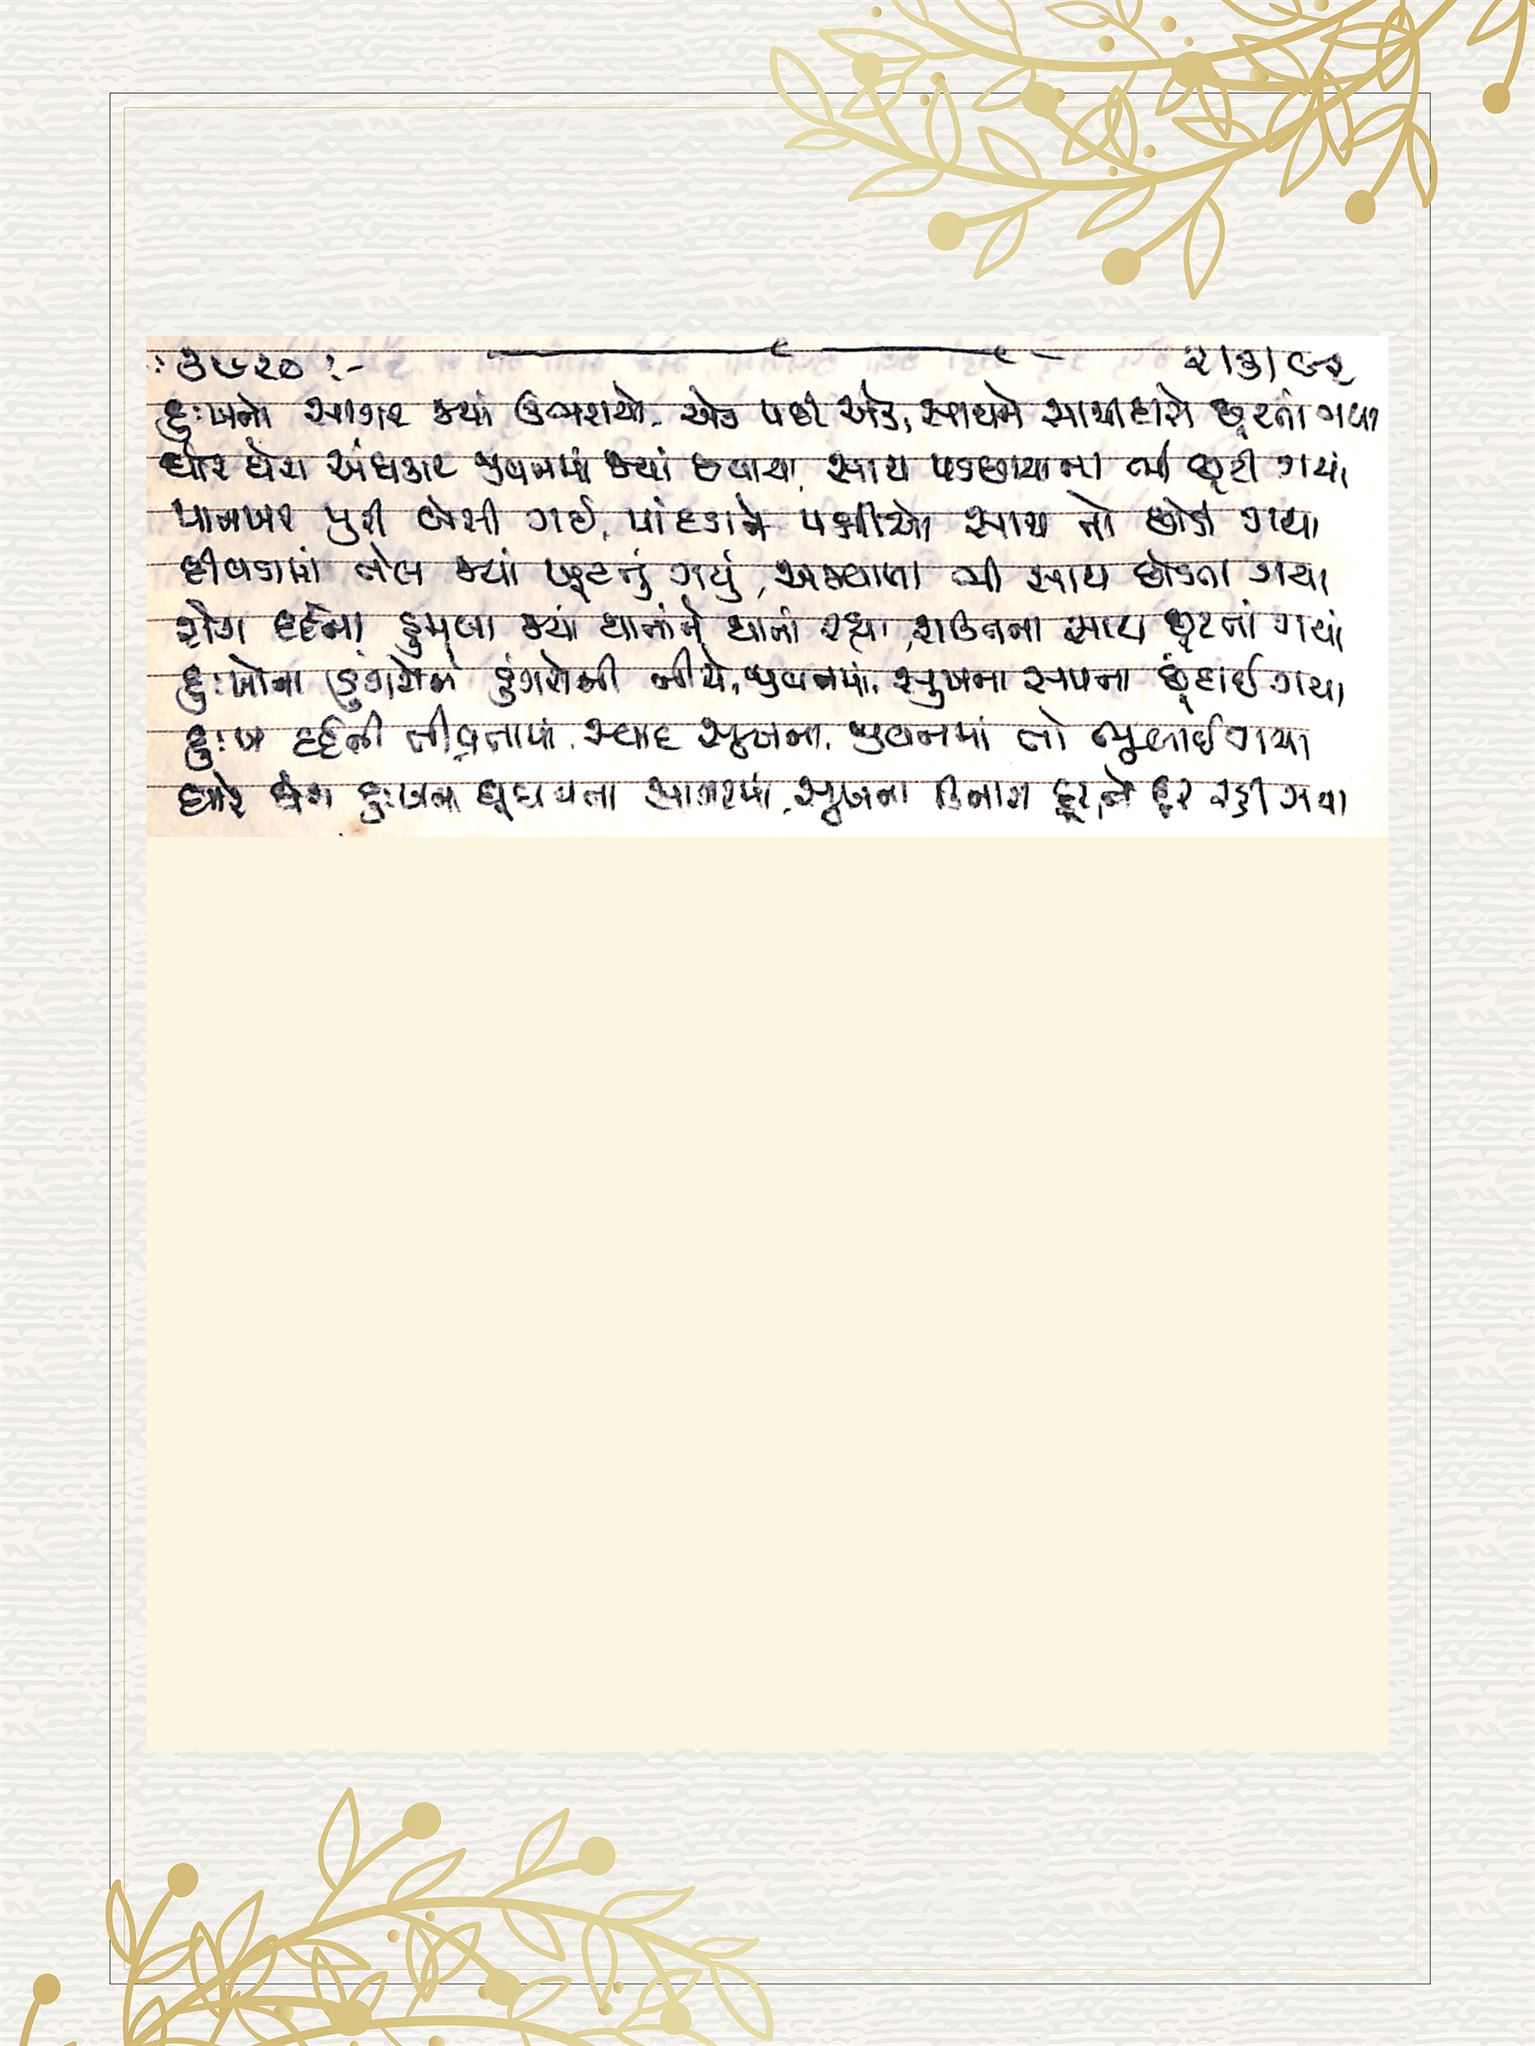 : ૩૭૨૦ :- ૨/૩/૯૨
દુઃખનો સાગર જ્યાં ઉભરાયો, એક પછી એક, સાથને સાથીદારો છૂટતાં ગયા
ઘોર ઘેરા અંધકાર જીવનમાં જ્યાં છવાયા, સાથ પડછાયાના ભી છૂટી ગયાં
પાનખર પુરી બેસી ગઈ, પાંદડાને પક્ષીઓ સાથ તો છોડી ગયા
દીવડામાં તેલ જ્યાં ખૂટતું ગયું, અજવાળા ભી સાથ છોડતા ગયા
રોગ દર્દના હુમલા જ્યાં થાતાંને થાતાં રહ્યા, રાઉનના સાથ છૂટતાં ગયાં
દુઃખોના ડુંગરોને ડુંગરોની નીચે, જીવનમાં, સુખના સપના છૂંદાઈ ગયા
દુઃખ દર્દની તીવ્રતામાં, સ્વાદ સુખના, જીવનમાં તો ભુલાઈ ગયા
ઘોર ઘેરા દુઃખના ઘૂઘવતા સાગરમાં, સુખના કિનારા દૂરને દૂર રહી ગયા